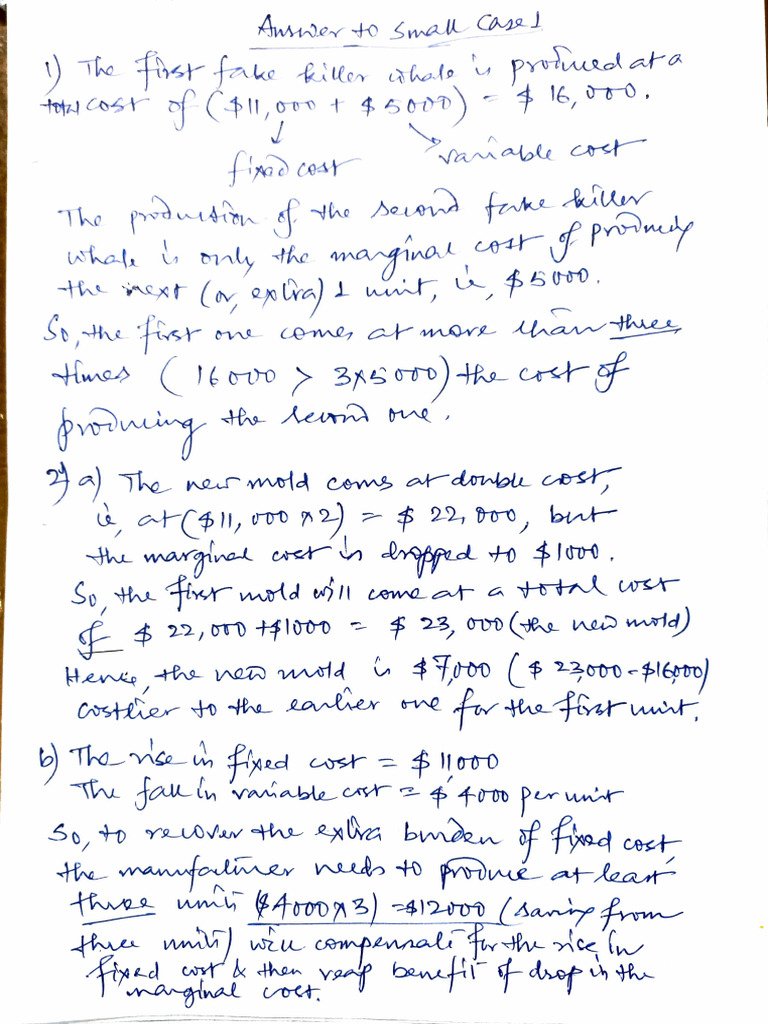 Answer to Small Case 1
1) The first fake killer whale is produced at a
total cost of ($11,000 + $5000) = $16,000.
fixed cost variable cost
The production of the second fake killer
whale is only the marginal cost of producing
the next (or, extra) 1 unit, ie, $5000.
So, the first one comes at more than three
times (16000 > 3x5000) the cost of
producing the second one.
2) a) The new mold coms at double cost,
ie, at ($11,000 x2) = $22,000, but
the marginal cost is dropped to $1000.
So, the first mold will come at a total cost
of $22,000 +$1000 = $23,000 (the new mold)
Hence, the new mold is $7,000 ($23,000-$16,000)
costlier to the earlier one for the first unit.
b) The rise in fixed cost = $11000
The fall in variable cost = $4000 per unit
So, to recover the extra burden of fixed cost,
the manufacturer needs to produce at least
three units ($4000x3) =$12000 (saving from
three units) will compensate for the rise in
fixed cost & then reap benefit of drop in the
marginal cost.